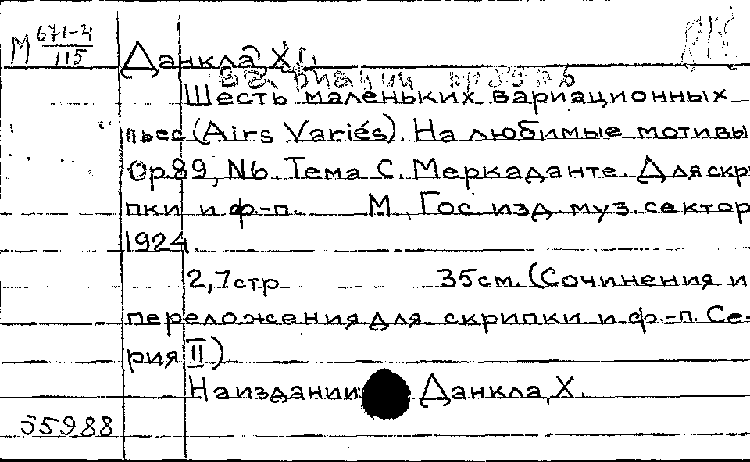 М 671-2/115
Данкла Х.
Шесть маленьких вариационных
пьес (Airs Variés). На любимые мотивы
Ор.89, N6. Тема С. Меркаданте. Для скри
пки и ф-п. М., Гос. изд. муз. сектор
1924.
2,7стр 35см. (Сочинения и
переложения для скрипки и ф-п. Се-
рия II)
На издании Данкла, Х.
35988